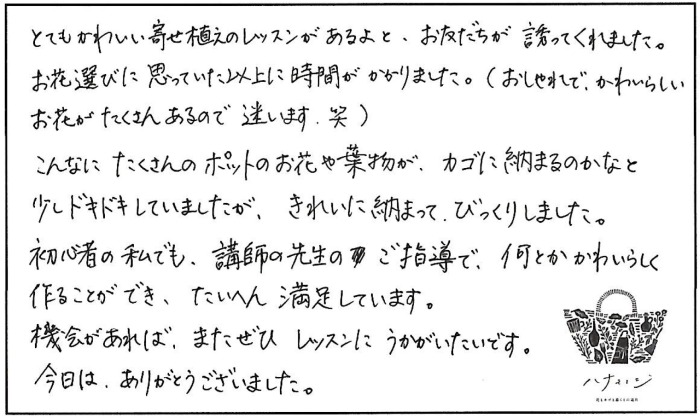 とてもかわいい寄せ植えのレッスンがあるよと、お友だちが誘ってくれました。
お花選びに思っていた以上に時間がかかりました。(おしゃれで、かわいらしい
お花がたくさんあるので迷います.笑)
こんなにたくさんのポットのお花や葉物が、カゴに納まるのかなと
少しドキドキしていましたが、きれいに納まって、びっくりしました。
初心者の私でも、講師の先生のご指導で、何とかかわいらしく
作ることができ、たいへん満足しています。
機会があれば、またぜひレッスンにうかがいたいです。
今日は、ありがとうございました。